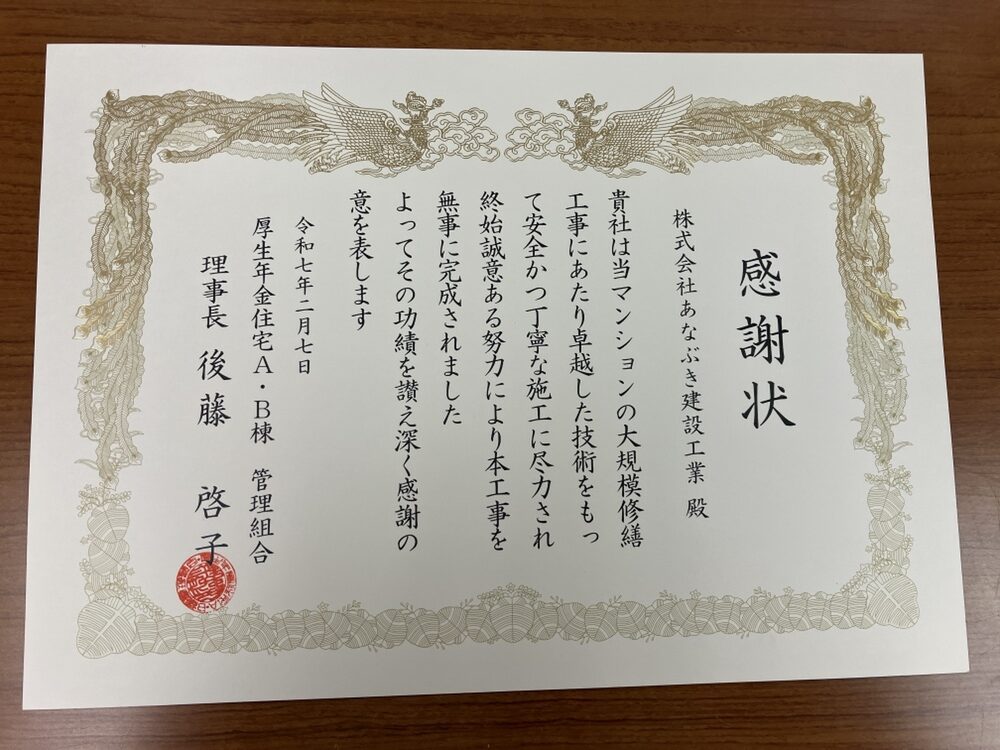 感謝状
株式会社あなぶき建設工業 殿
貴社は当マンションの大規模修繕
工事にあたり卓越した技術をもっ
て安全かつ丁寧な施工に尽力され
終始誠意ある努力により本工事を
無事に完成されました
よってその功績を讃え深く感謝の
意を表します
令和七年二月七日
厚生年金住宅A・B棟 管理組合
理事長 後藤 啓子